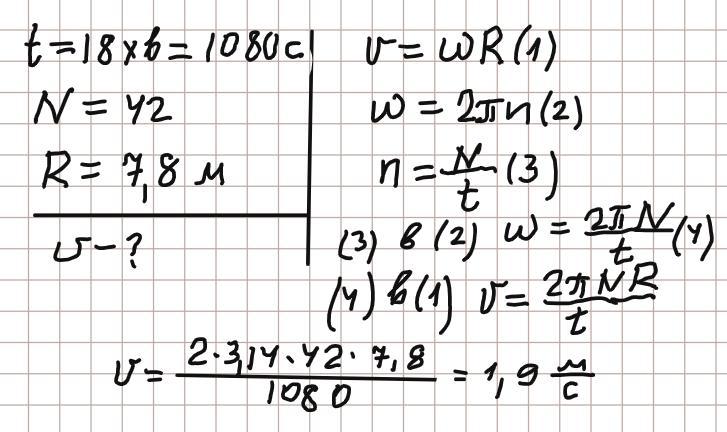 t = 18 хв = 1080 с
N = 42
R = 7,8 м
v - ?
v = ωR (1)
ω = 2πn (2)
n = N/t (3)
(3) в (2) ω = 2πN/t (4)
(4) в (1) v = 2πNR/t
v = 2·3,14·42·7,8/1080 = 1,9 м/с